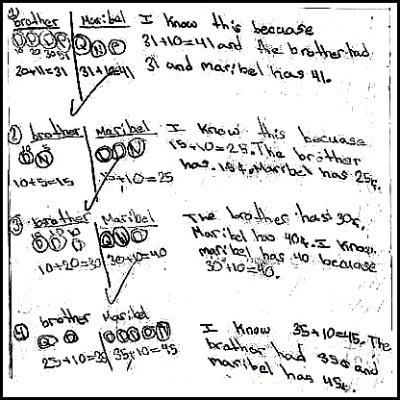 ① brother Maribel I know this becuase
31+10=41 and the brother had
20+11=31 31+10=41 31 and maribel has 41.
② brother Maribel I know this becuase
15+10=25. The brother
has 15¢. Maribel has 25¢.
10+5=15 15+10=25
③ brother Maribel The brother has 30¢.
Maribel has 40¢. I know
maribel has 40 becuase
10+20=30 30+10=40 30+10=40.
④ brother Maribel I know 35+10=45. The
brather had 35¢ and
25+10=35 35+10=45 maribel has 45¢.